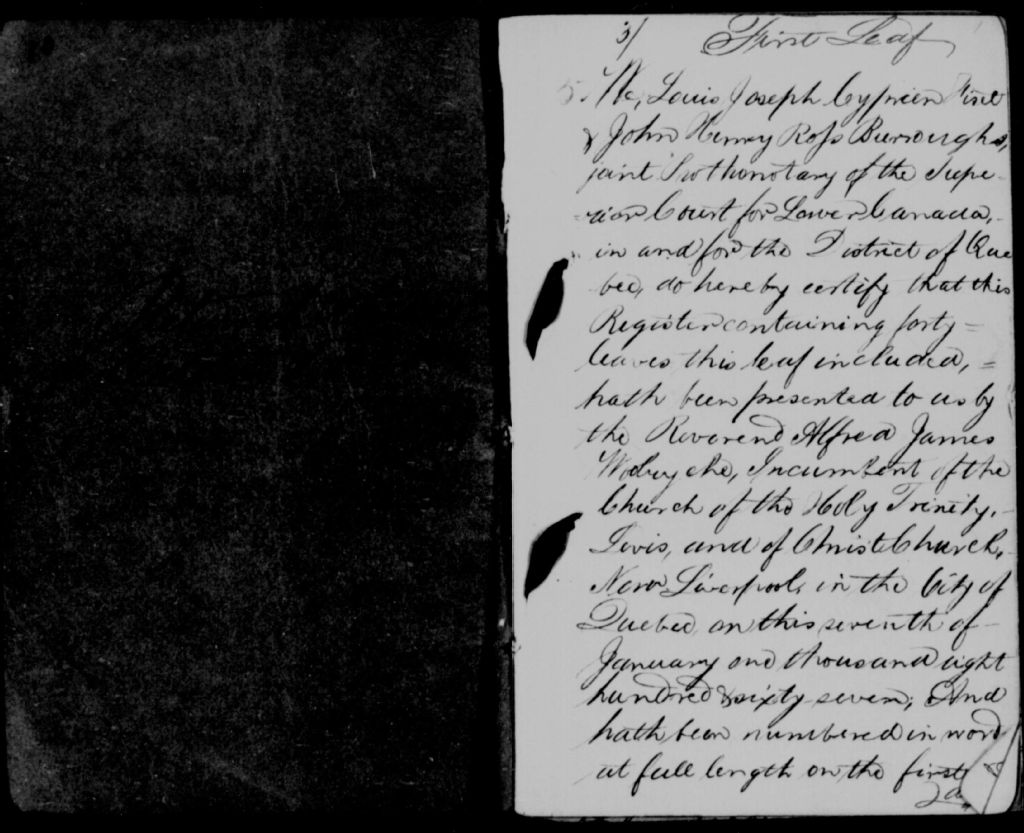 3/ First Leaf
We, Louis Joseph Cyprien Fiset
& John Henry Ross Burroughs,
joint Prothonotary of the Supe-
=rior Court for Lower Canada,-
in and for the District of Que
bec, do hereby certify that this
Register containing forty =
leaves this leaf included, =
hath been presented to us by
the Reverend Alfred James
Woolryche, Incumbent of the
Church of the Holy Trinity,-
Levis, and of Christ Church,-
New Liverpool, in the City of
Quebec, on this seventh of -
January one thousand eight
hundred & sixty seven; And
hath been numbered in word
at full length on the first